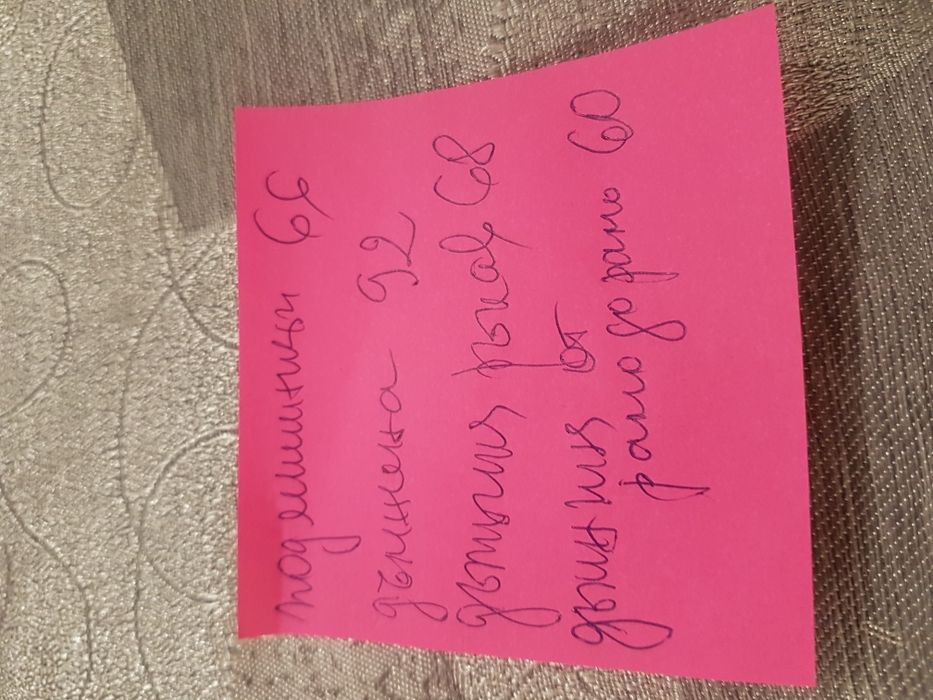 подмишници 66
дължена 92
дължия ръкав 68
дьинния от
рамо до рамо 60